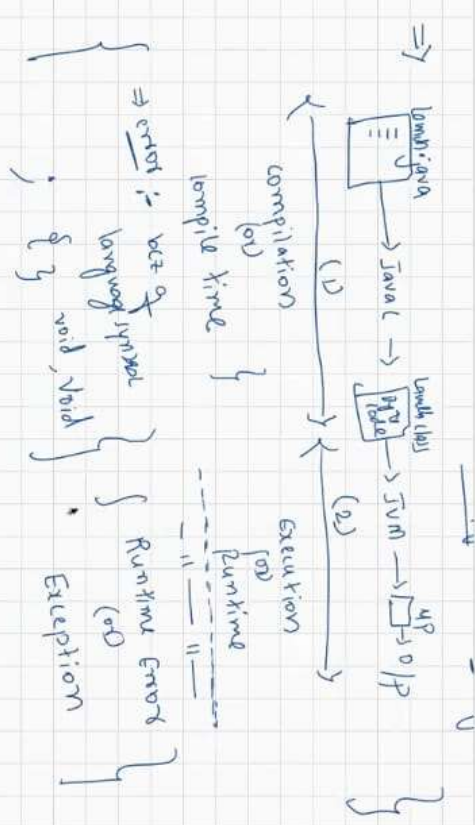 => Launch.java → Javac → Launch class Byte code → JVM → MP → O/P
(1) (2)
compilation
(or)
compile time
Execution
(or)
Runtime
=> error :- bcz of
language syntax
void, Void
; { }
Runtime Error
(or)
Exception